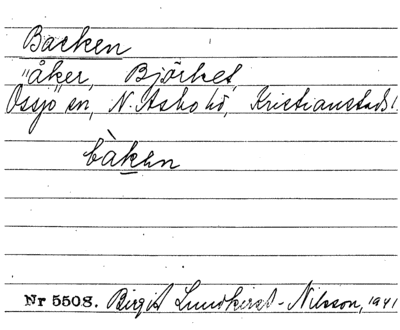 Backen
"åker, Björket,
Össjö sn, N. Åsbo hd, Kristianstads l.
bàken
Nr 5508. Birgit Lundkvist-Nilsson, 1941